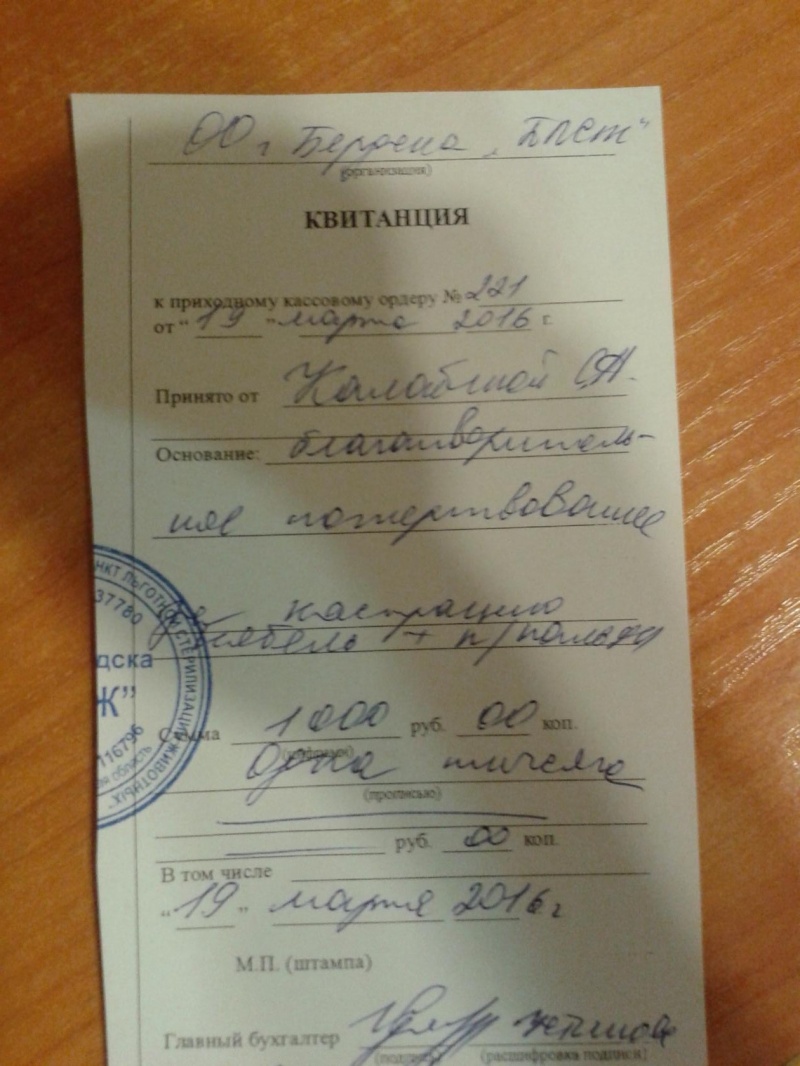 ОО г Бердска „БПСЖ“
(организация)
КВИТАНЦИЯ
к приходному кассовому ордеру № 221
от “19” марта 2016 г.
Принято от
Основание: благотворитель-
ное пожертвование
кастрацию
кобель +
Сумма 1000 руб. 00 коп.
(цифрами)
Одна тысяча
(прописью)
руб. 00 коп.
В том числе
“19” марта 2016 г
М.П. (штампа)
Главный бухгалтер
(подпись) (расшифровка подписи)
НКТ ЛЬГОТНОЙ СТЕРИЛИЗАЦИИ ЖИВОТНЫХ"
37780
дска
Ж”
116796
ая область